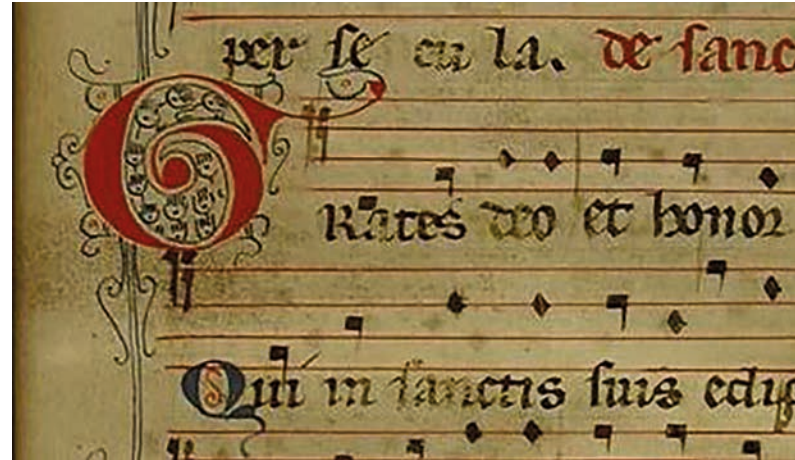 per se cu la. de sanc
GRates deo et honor
Qui in sanctis suis edip